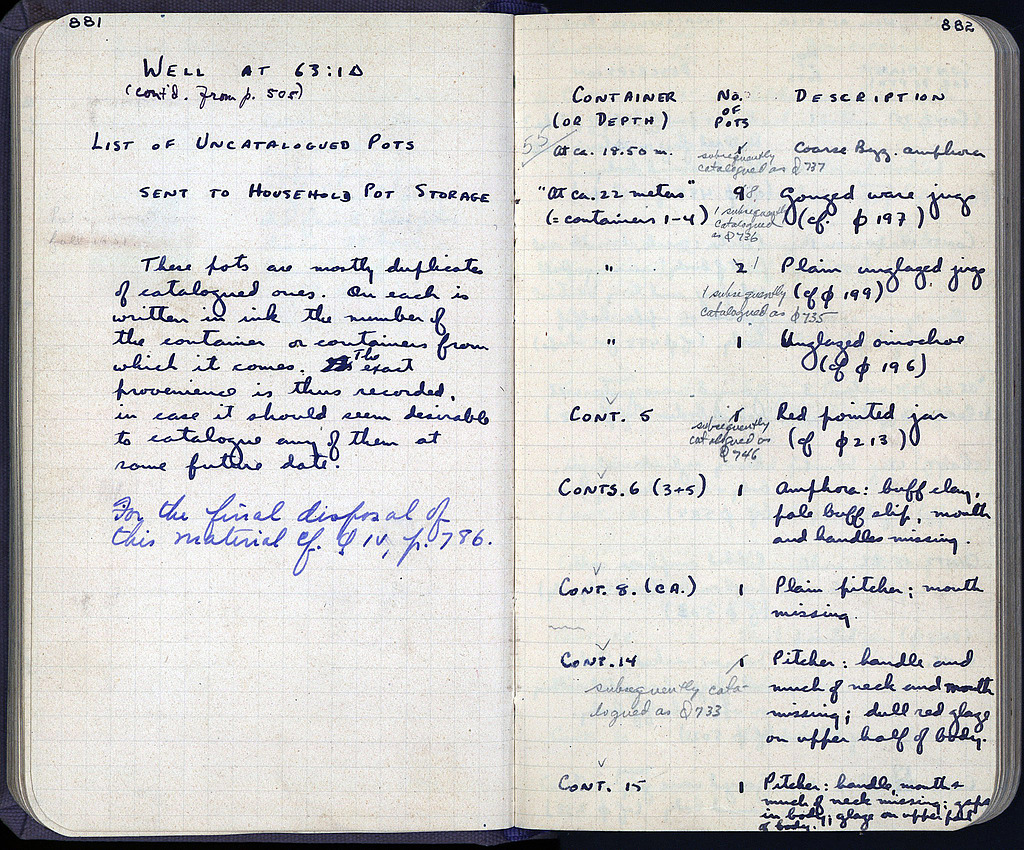 881
WELL AT 63:1Δ
(cont'd. from p. 505)
LIST OF UNCATALOGUED POTS
SENT TO HOUSEHOLD POT STORAGE
These pots are mostly duplicates
of catalogued ones. On each is
written in ink the number of
the container or containers from
which it comes. The exact
provenience is thus recorded,
in case it should seem desirable
to catalogue any of them at
some future date.
For the final disposal of
this material cf. Q IV, p. 786.
882
CONTAINER No. DESCRIPTION
(OR DEPTH) OF
POTS
55
At ca. 18.50 m. 1 Coarse Byz. amphora
subsequently
catalogued as Q 737
"At ca. 22 meters" 9 8, Gouged ware jugs
(= containers 1-4) (cf. Q 197)
1 subsequently
catalogued
as Q 736
" 2 1 Plain unglazed jugs
(cf Q 199)
1 subsequently
catalogued as Q 735
" 1 Unglazed oinochoe
(cf Q 196)
CONT. 5 1 Red pointed jar
(cf Q 213)
subsequently
catalogued as
Q 746
CONTS. 6 (3+5) 1 Amphora: buff clay,
pale buff slip, mouth
and handles missing.
CONT. 8. (CA.) 1 Plain pitcher; mouth
missing.
CONT. 14 1 Pitcher: handle and
much of neck and mouth
missing; dull red glaze
on upper half of body.
subsequently cata-
logued as Q 733
CONT. 15 1 Pitcher: handle, mouth +
much of neck missing; gaps
in body; glaze on upper part
of body.